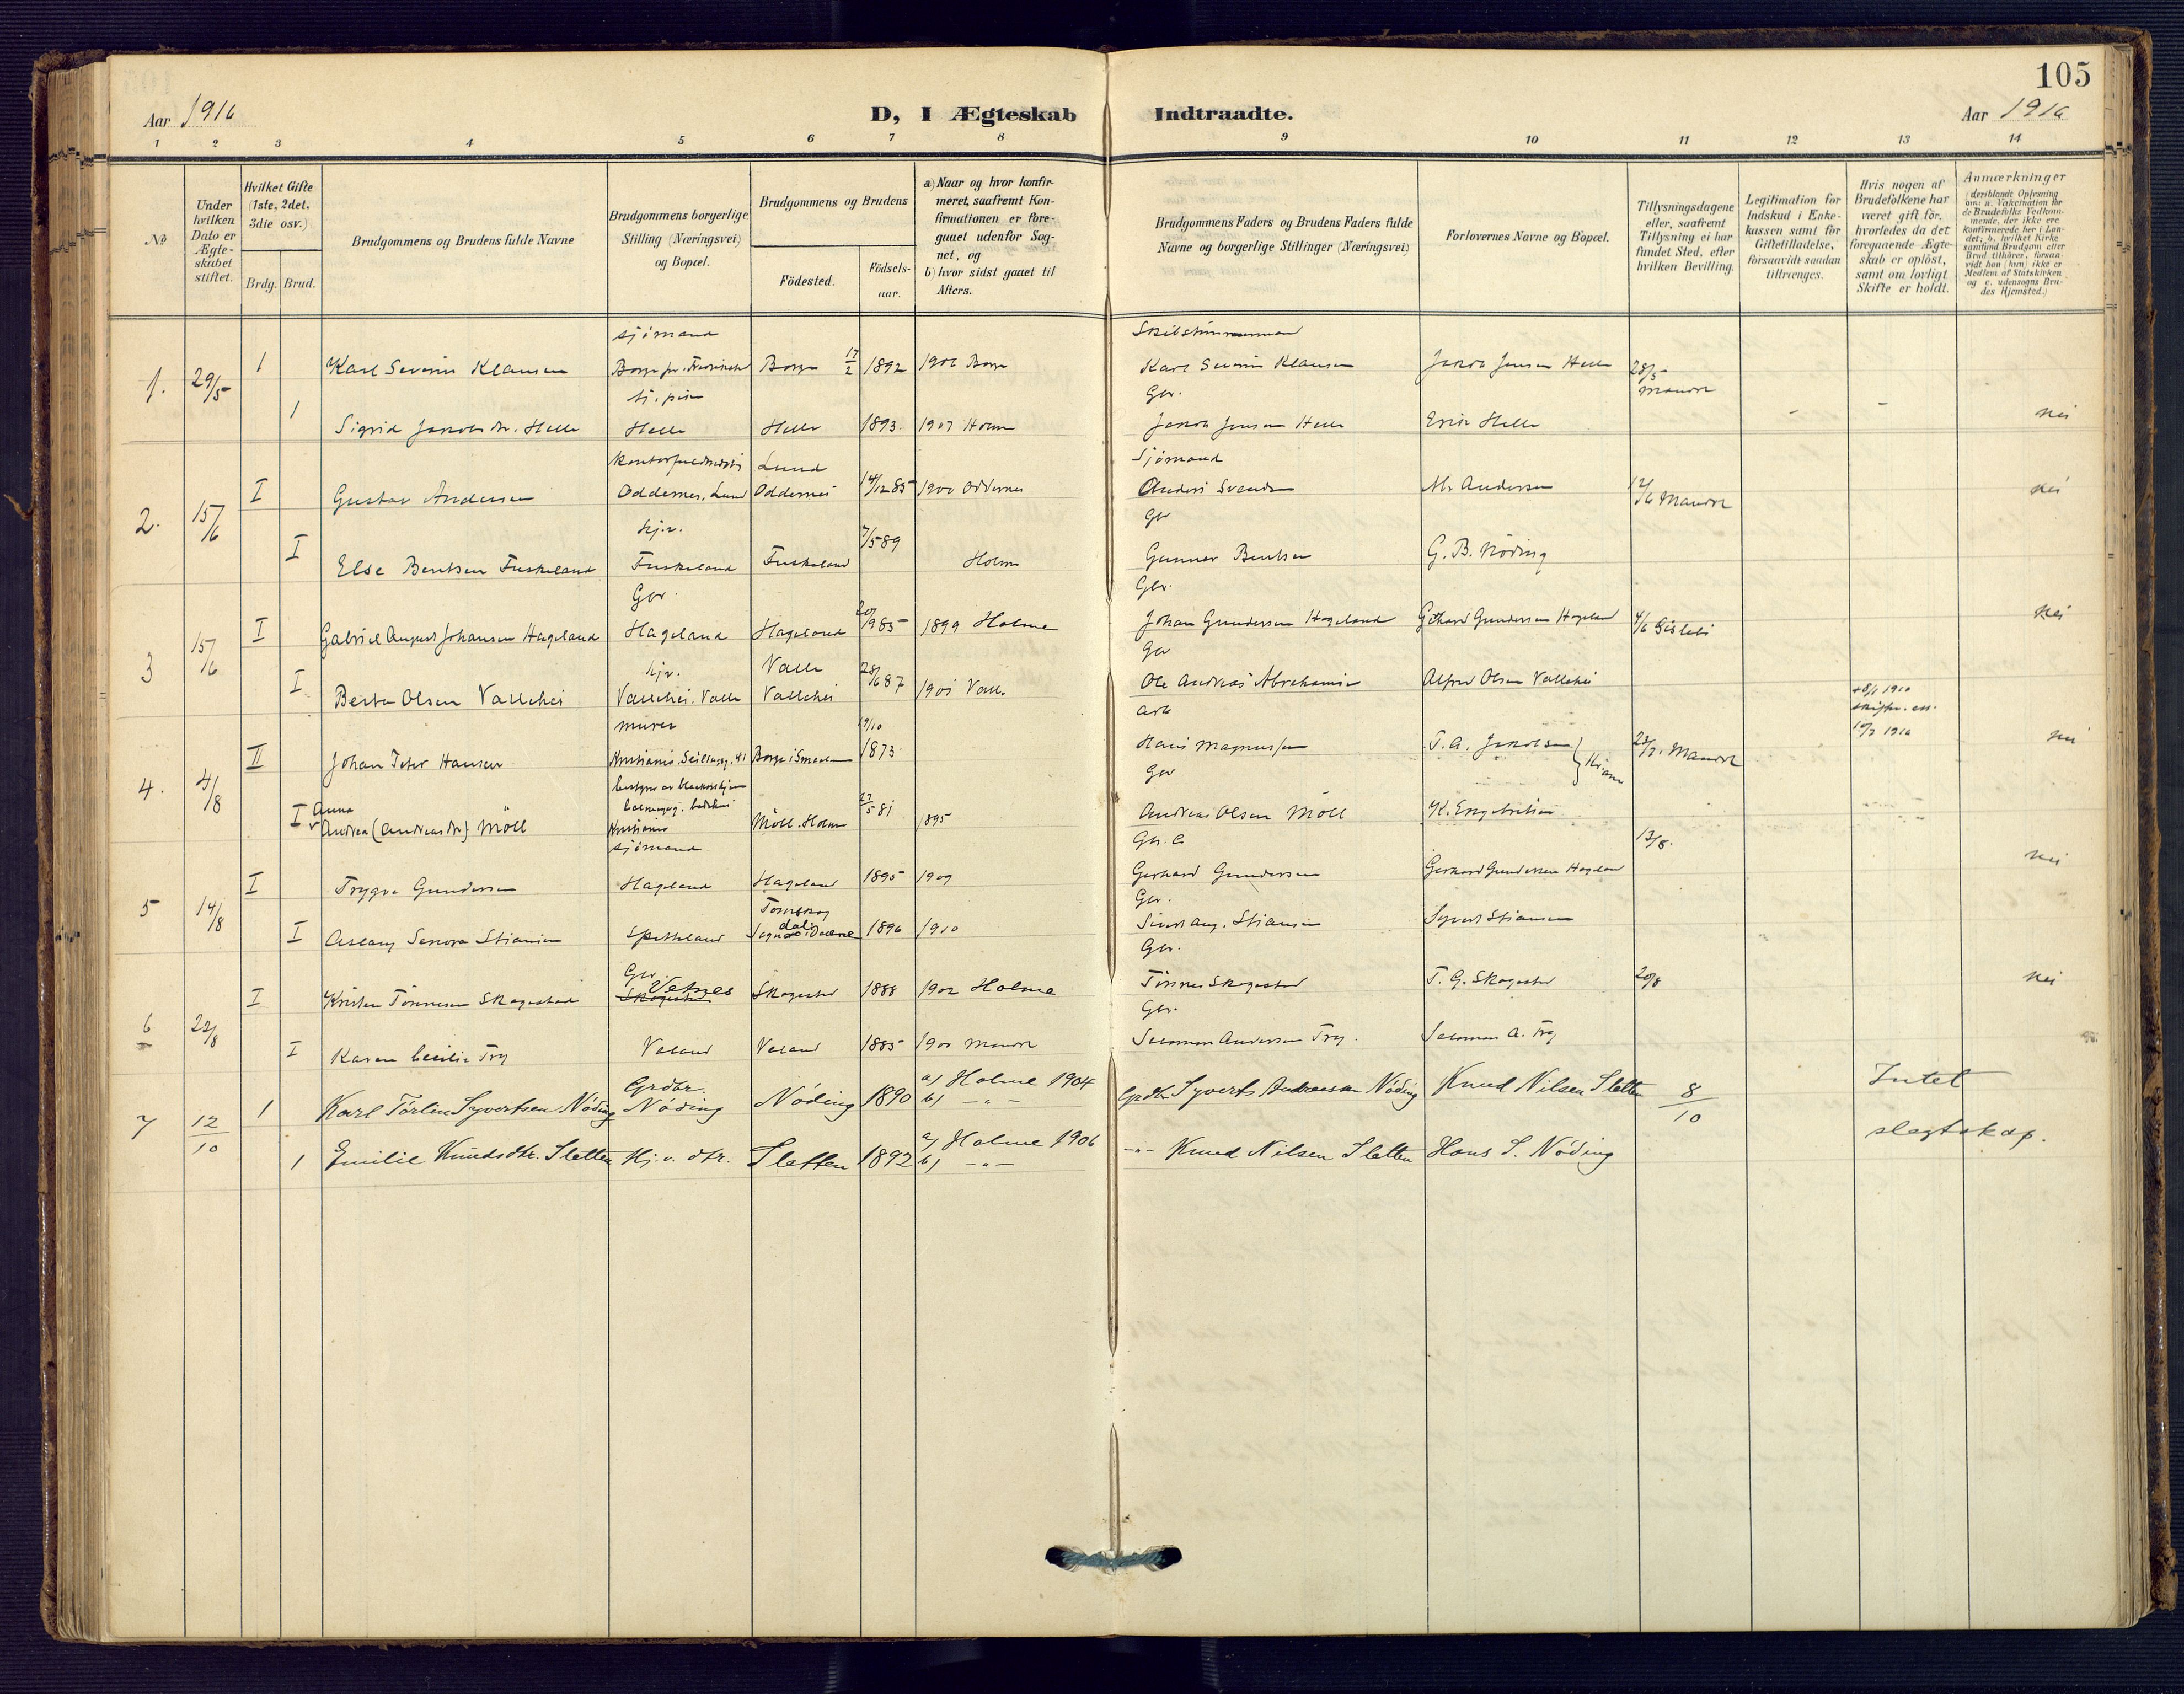 105
Aar 1916
D, I Ægteskab Indtraadte.
Aar 1916
1 2 3 4 5 6 7 8 9 10 11 12 13 14
No
Under hvilken Dato er Ægteskabet stiftet.
Hvilket Gifte (1ste, 2det, 3die osv.)
Brdg. Brud.
Brudgommens og Brudens fulde Navne
Brudgommens borgerlige Stilling (Næringsvei) og Bopæl.
Brudgommens og Brudens
Födested.
Födsels-aar.
a) Naar og hvor konfir-
meret, saafremt Kon-
firmationen er fore-
gaaet udenfor Sog-
net, og
b) hvor sidst gaaet til
Alters.
Brudgommens Faders og Brudens Faders fulde
Navne og borgerlige Stillinger (Næringsvei)
Forlovernes Navne og Bopæl.
Tillysningsdagene
eller, saafremt
Tillysning ei har
fundet Sted, efter
hvilken Bevilling.
Legitimation for
Indskud i Enke-
kassen samt for
Giftetilladelse,
forsaavidt saadan
tiltrænges.
Hvis nogen af
Brudefolkene har
været gift för,
hvorledes da det
foregaaende Ægte-
skab er oplöst,
samt om lovligt
Skifte er holdt.
Anmærkninger
(deriblandt Oplysning
om: a. Vaccination for
de Brudefolks Vedkom-
mende, der ikke ere
Konfirmerede her i Lan-
det; b. hvilket Kirke
samfund Brudgom eller
Brud tilhörer, forsaa-
vidt han (hun) ikke er
Medlem af Statskirken
og c. udensogns Bru-
des Hjemsted.)
sjömand Skibstömmermand
1. 29/5 1 Karl Severin Klausen Borge pr. Fredrikstad Borge 17/2 1892 1906 Borge Karl Severin Klausen Jakob Jensen Helle 28/5 Mandal
Gbr.
1 Sigrid Jakobsdtr. Helle Helle Helle 1893. 1907 Holme Jakob Jensen Helle Erik Helle - - nei
Lund Sjömand
2. 15/6 I Gustav Andersen Oddernes, Lund Oddernes 14/12 85 1900 Oddernes Anders Svendsen M. Andersen 12/6 Mandal nei
hj.v. 7/5 89 Gbr
I Else Bentsen Fuskeland Fuskeland Fuskeland Holme Gunner Bentsen G. B. Nöding
Gbr. Gbr.
3 15/6 I Gabriel August Johansen Hageland Hageland Hageland 20/9 85 1899 Holme Johan Gundersen Hageland Gerhard Gundersen Hageland 4/6 nei
hj.v. Valle 28/6 87 Gbr
I Berta Olsen Vallehei Vallehei. Valle Vallehei 1901 Valle Ole Andreas Abrahamsen Alfred Olsen Vallehei
murer 19/10 Arb 1910
4. 4/8 II Johan Peter Hansen Kristiania 41 Borge i Smaalenene 1873. Hans Magnussen T. A. Jakobsen 23/7. Mandal 10/7 1916 nei
Gbr
I Anna Andrea (Andreasdtr) Möll Kristiania Möll. Holme 27/5 81 1895 Andreas Olsen Möll K. Engebretsen
sjömand 13/8.
5 14/8 I Trygve Gundersen Hageland Hageland 1895 1909 Gerhard Gundersen Gerhard Gundersen Hageland nei
Gbr.
I Aslaug Senora Stiansen Spetteland 1896 1910 Sivert Aug. Stiansen Syvert Stiansen
Gbr. Gbr.
6 22/8 I Kristen Tönnesen Skogestad Skogestad Vetnes Skogestad 1888 1902 Holme Tönnes Skogestad T. G. Skogestad 20/8 nei
Gbr.
I Karen Cecilie Try Valand Valand 1885 1900 Mandal Salomon Andersen Try. Salomon A. Try
Grdbr. a) Holme 1904
7 12/10 1 Karl Törlin Syvertsen Nöding Nöding Nöding 1890 b) -"- Grdbr Syvert Andreassen Nöding Knud Nilsen Sletten 8/10 Intet
a) Holme 1906 slagtskap.
1 Emilie Knudsdtr. Sletten Hj.v. dtr. Sletten 1892 b) -"- -"- Knud Nilsen Sletten Hans S. Nöding